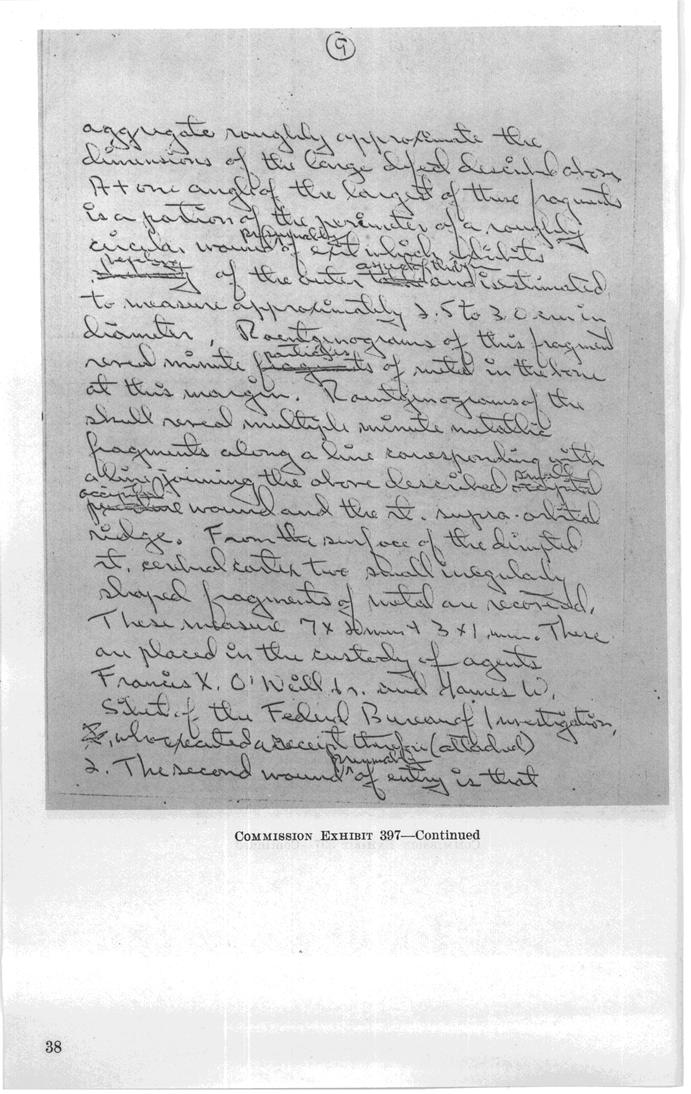 9
aggregate roughly approximate the
dimensions of the large defect described above
At one angle of the largest of these fragments
is a portion of the perimeter of a roughly
presumably
circular wound of exit which exhibits
beveling of the outer aspect of the bone and is estimated
to measure approximately 2.5 to 3.0 cm in
diameter. Roentgenograms of this fragment
particles
reveal minute fragments of metal in the bone
at this margin. Roentgenograms of the
skull reveal multiple minute metallic
fragments along a line corresponding with
a line joining the above described small occipital
occipital
wound and the rt. supra-orbital
ridge. From the surface of the disrupted
rt. cerebral cortex two small irregularly
shaped fragments of metal are recovered.
These measure 7 x 2 mm + 3 x 1 mm. These
are placed in the custody of agents
Francis X. O'Neill Jr. and James W.
Sibert, of the Federal Bureau of Investigation,
who executed a receipt therefor (attached)
presumably
2. The second wound of entry is that
COMMISSION EXHIBIT 397—Continued
38